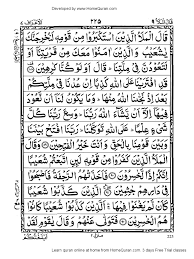 Developed by www.HomeQuran.com
قال الملا ٩ ٢٢٥ الاعراف ٧
قَالَ الْمَلَاُ الَّذِيْنَ اسْتَكْبَرُوْا مِنْ قَوْمِهٖ لَنُخْرِجَنَّكَ
يٰشُعَيْبُ وَالَّذِيْنَ اٰمَنُوْا مَعَكَ مِنْ قَرْيَتِنَاۤ اَوْ
لَتَعُوْدُنَّ فِيْ مِلَّتِنَا ؕ قَالَ اَوَلَوْ كُنَّا كٰرِهِيْنَ
قَدِ افْتَرَيْنَا عَلَى اللّٰهِ كَذِبًا اِنْ عُدْنَا فِيْ مِلَّتِكُمْ
بَعْدَ اِذْ نَجّٰىنَا اللّٰهُ مِنْهَا ؕ وَمَا يَكُوْنُ لَنَاۤ اَنْ نَّعُوْدَ
فِيْهَاۤ اِلَّاۤ اَنْ يَّشَآءَ اللّٰهُ رَبُّنَا ؕ وَسِعَ رَبُّنَا كُلَّ شَيْءٍ
عِلْمًا ؕ عَلَى اللّٰهِ تَوَكَّلْنَا ؕ رَبَّنَا افْتَحْ بَيْنَنَا وَبَيْنَ
قَوْمِنَا بِالْحَقِّ وَاَنْتَ خَيْرُ الْفٰتِحِيْنَ وَقَالَ الْمَلَاُ
الَّذِيْنَ كَفَرُوْا مِنْ قَوْمِهٖ لَئِنِ اتَّبَعْتُمْ شُعَيْبًا
اِنَّكُمْ اِذًا لَّخٰسِرُوْنَ فَاَخَذَتْهُمُ الرَّجْفَةُ فَاَصْبَحُوْا
فِيْ دَارِهِمْ جٰثِمِيْنَ الَّذِيْنَ كَذَّبُوْا شُعَيْبًا
كَاَنْ لَّمْ يَغْنَوْا فِيْهَا ۛ اَلَّذِيْنَ كَذَّبُوْا شُعَيْبًا كَانُوْا
هُمُ الْخٰسِرِيْنَ فَتَوَلّٰى عَنْهُمْ وَقَالَ يٰقَوْمِ لَقَدْ
225
Learn quran online at home from HomeQuran.com 3 days Free Trial classes